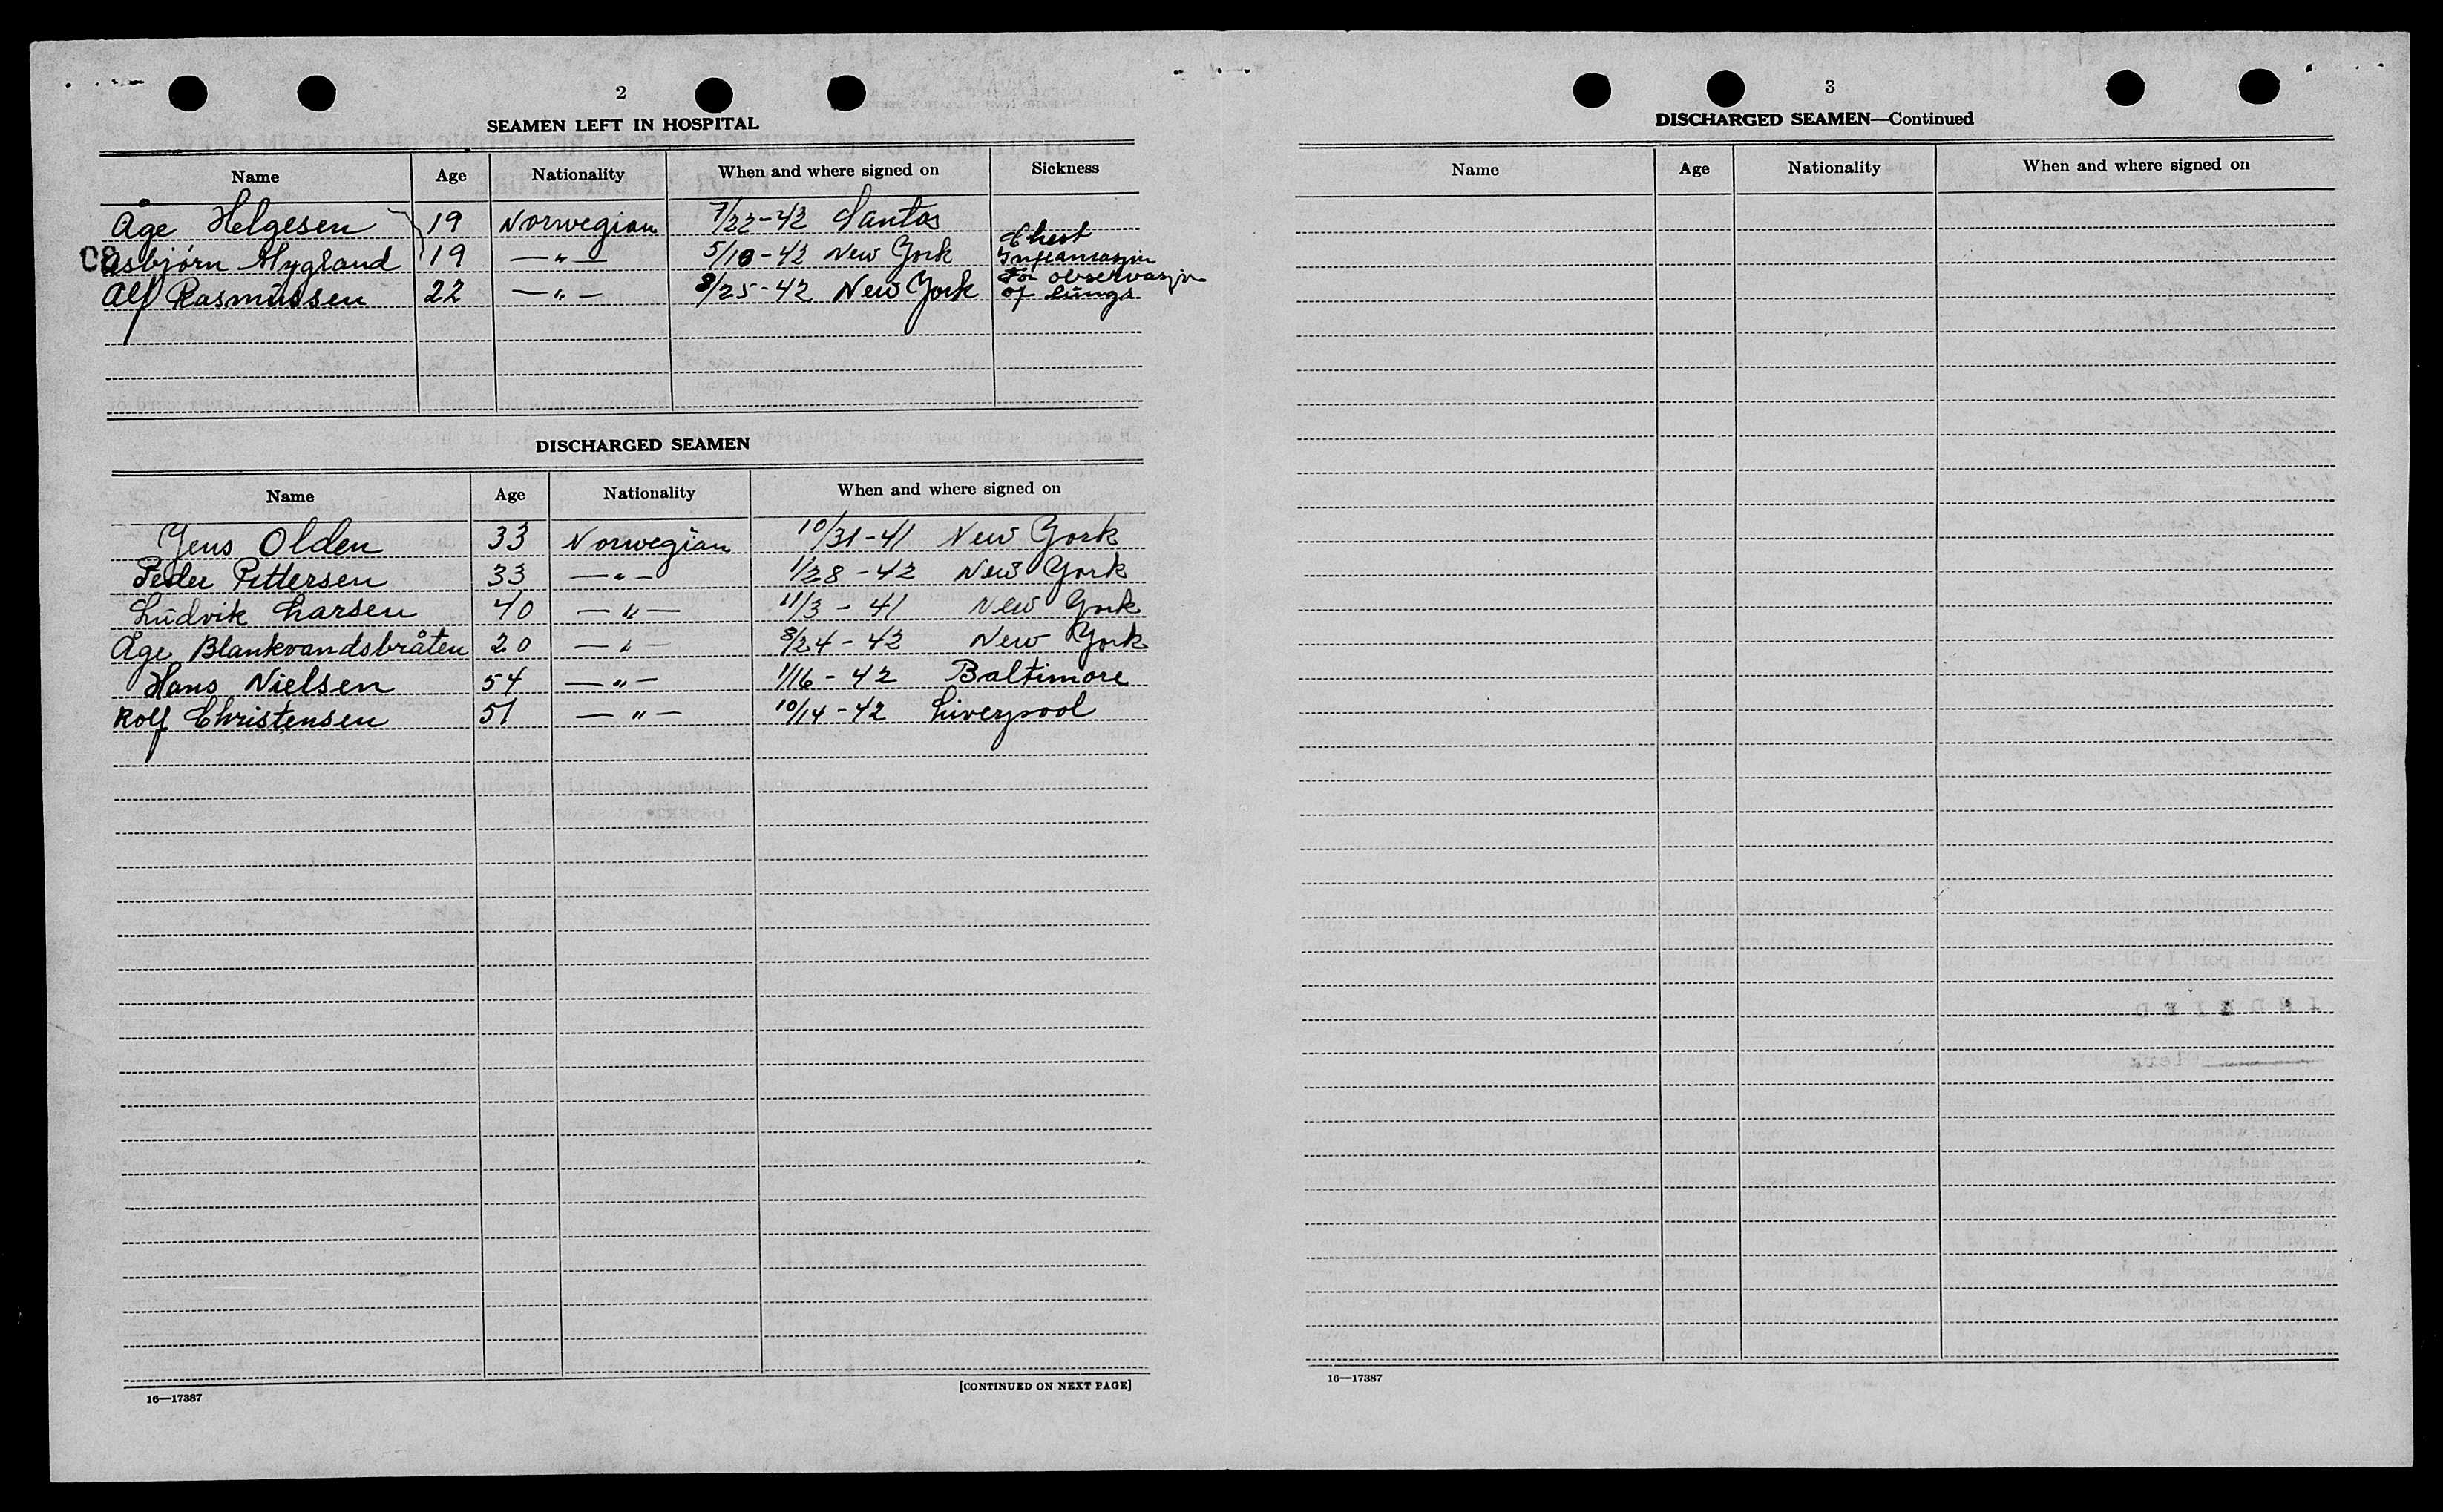 2
SEAMEN LEFT IN HOSPITAL
Name Age Nationality When and where signed on Sickness
Åge Helgesen 19 Norwegian 7/22-42 Santos
Asbjørn Mygland 19 —"— 5/10-42 New York Chest Inflamasjon
Alf Rasmussen 22 —"— 8/25-42 New York For observasjon of Lungs
DISCHARGED SEAMEN
Name Age Nationality When and where signed on
Jens Olden 33 Norwegian 10/31-41 New York
Peder Pettersen 33 —"— 1/28-42 New York
Ludvik Larsen 40 —"— 11/3-41 New York
Åge Blankvandsbråten 20 —"— 8/24-42 New York
Hans Nielsen 54 —"— 1/16-42 Baltimore
Rolf Christensen 51 —"— 10/14-42 Liverpool
16—17387
[CONTINUED ON NEXT PAGE]
3
DISCHARGED SEAMEN—Continued
Name Age Nationality When and where signed on
16—17387